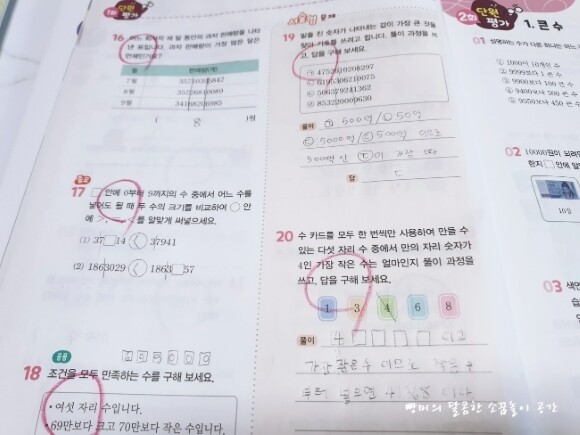 단원 평가
16 어느 회사의 세 달 동안의 과자 판매량을 나타
낸 표입니다. 과자 판매량이 가장 많은 달은
언제인가요?
월
7월
8월
9월
( 8 )월
중요
17 □ 안에 0부터 9까지의 수 중에서 어느 수를
넣어도 될 때 두 수의 크기를 비교하여 ○ 안
에 >, =, <를 알맞게 써넣으세요.
(1) 37□14 < 37941
(2) 1863029 < 1863□57
응용
18 조건을 모두 만족하는 수를 구해 보세요.
• 여섯 자리 수입니다.
• 69만보다 크고 70만보다 작은 수입니다.
서술형 문제
19 밑줄 친 숫자가 나타내는 값이 가장 큰 것을
찾아 기호를 쓰려고 합니다. 풀이 과정을
쓰고, 답을 구해 보세요.
풀이
답
20 수 카드를 모두 한 번씩만 사용하여 만들 수
있는 다섯 자리 수 중에서 만의 자리 숫자가
4인 가장 작은 수는 얼마인지 풀이 과정을
쓰고, 답을 구해 보세요.
1 3 4 6 8
풀이 4 □ □ □ □ 이고
가장 작은수 이므로 작은 수
부터 넣으면
2회 단원 평가 1. 큰 수
01
① 1000이 10개인 수
② 9999보다 1 큰 수
③ 9900보다 100 큰 수
④ 9400보다 500 큰 수
⑤ 9550보다 450 큰 수
02 10000원이 되려면
한지 □ 안에 알
10장
03 색연
빵미의 달콤한 소꿉놀이 공간